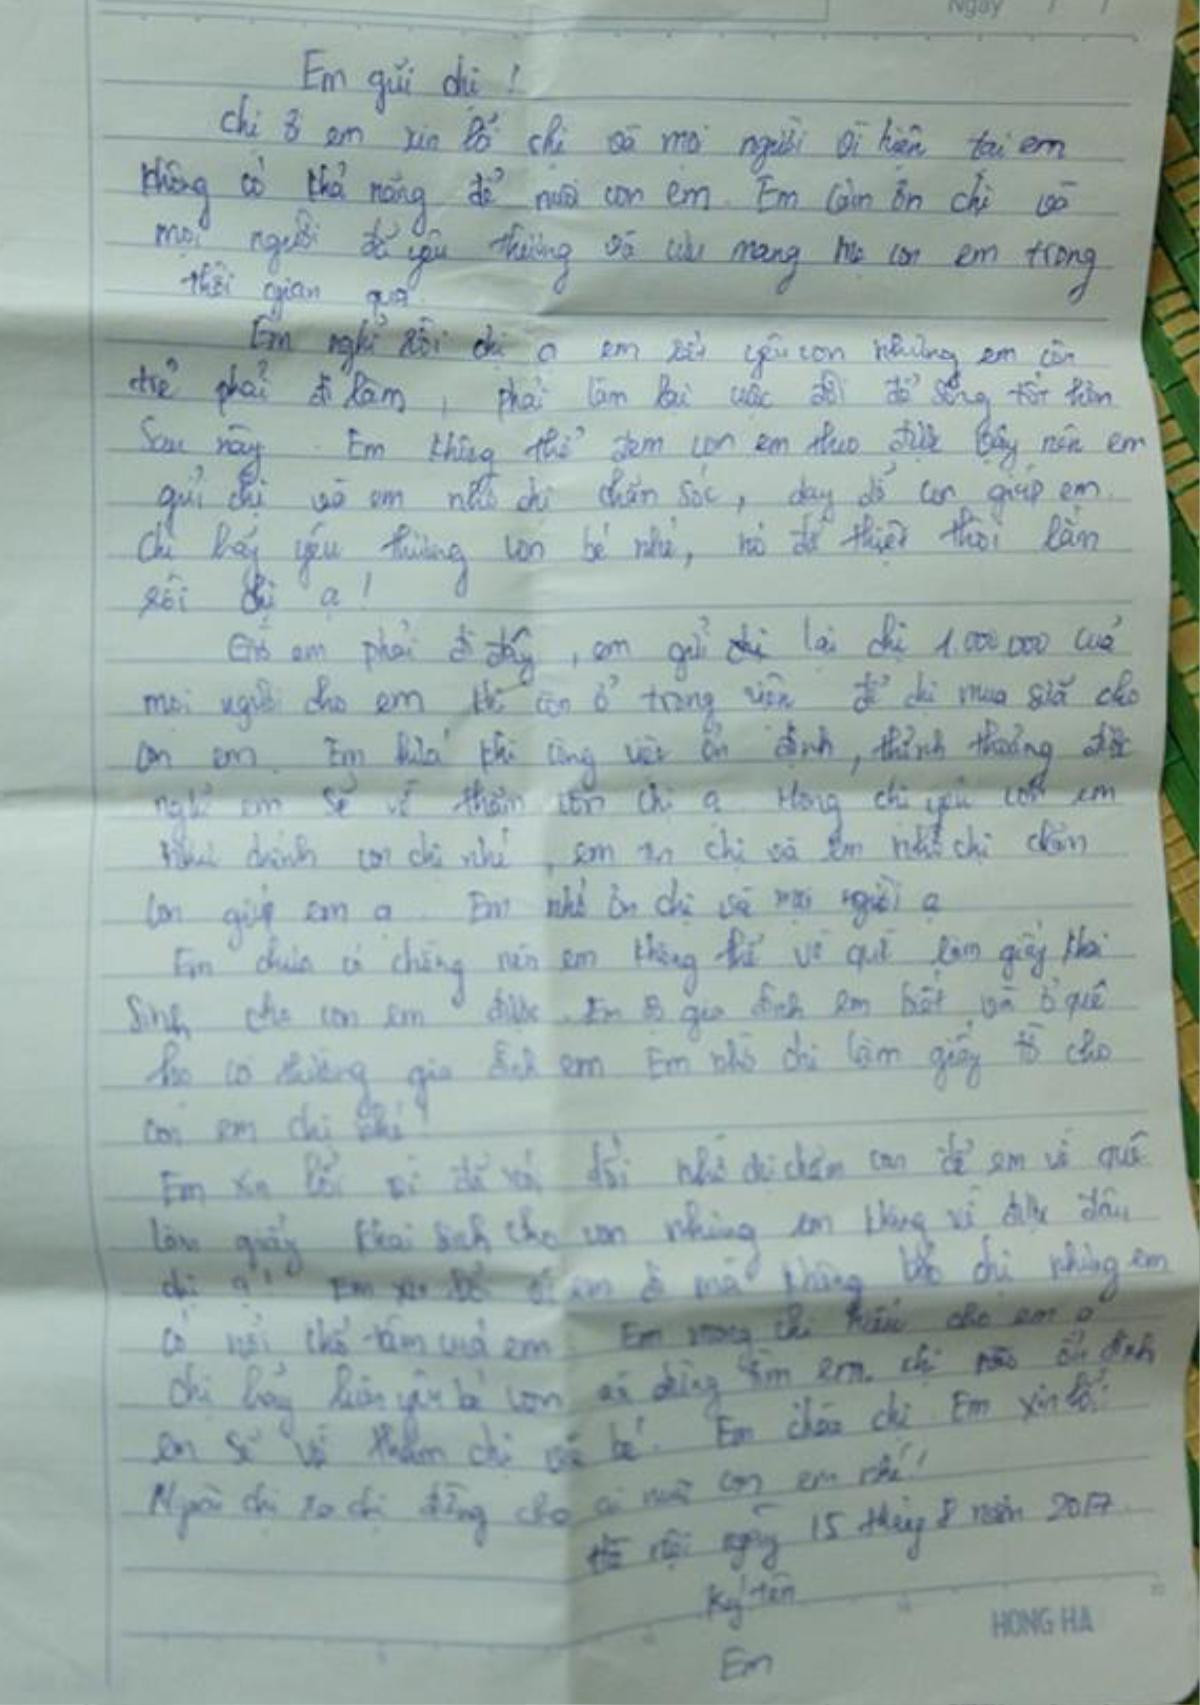 Ngày / /
Em gửi chị !
Chị ơi em xin lỗi chị và mọi người vì hiện tại em
không có khả năng để nuôi con em. Em cảm ơn chị và
mọi người đã yêu thương và cưu mang mẹ con em trong
thời gian qua.
Em nghĩ rồi chị ạ em rất yêu con nhưng em còn
trẻ phải đi làm, phải làm lại cuộc đời để sống tốt hơn
sau này. Em không thể đem con em theo được vậy nên em
gửi chị và em nhờ chị chăm sóc, dạy dỗ con giúp em.
Chị hãy yêu thương con bé nhé, nó đã thiệt thòi lắm
rồi chị ạ!
Giờ em phải đi đây, em gửi chị lại chị 1.000.000 của
mọi người cho em khi còn ở trong viện để chị mua sữa cho
con em. Em hứa khi công việc ổn định, thỉnh thoảng được
nghỉ em sẽ về thăm con chị ạ. Mong chị yêu con em
như con chị nhé, em xin chị và em nhờ chị chăm
con giúp em ạ. Em nhớ ơn chị và mọi người ạ
Em chưa có chồng nên em không thể về quê làm giấy khai
sinh cho con em được. Em sợ gia đình em biết và ở quê
họ cười gia đình em. Em nhờ chị làm giấy tờ cho
con em chị nhé!
Em xin lỗi vì đã nói dối nhờ chị chăm con để em về quê
làm giấy khai sinh cho con nhưng em không về được đâu
chị ạ! Em xin lỗi vì em đi mà không bảo chị nhưng em
có nỗi khổ tâm của em. Em mong chị hiểu cho em ạ
Chị hãy luôn yêu bé con và đừng tìm em. chị nào ổn định
em sẽ về thăm chị và bé. Em chào chị. Em xin lỗi
Ngoài chị ra chị đừng cho ai nuôi con em nhé!!
Hà Nội ngày 15 tháng 8 năm 2017
Ký tên
Em
HONG HA